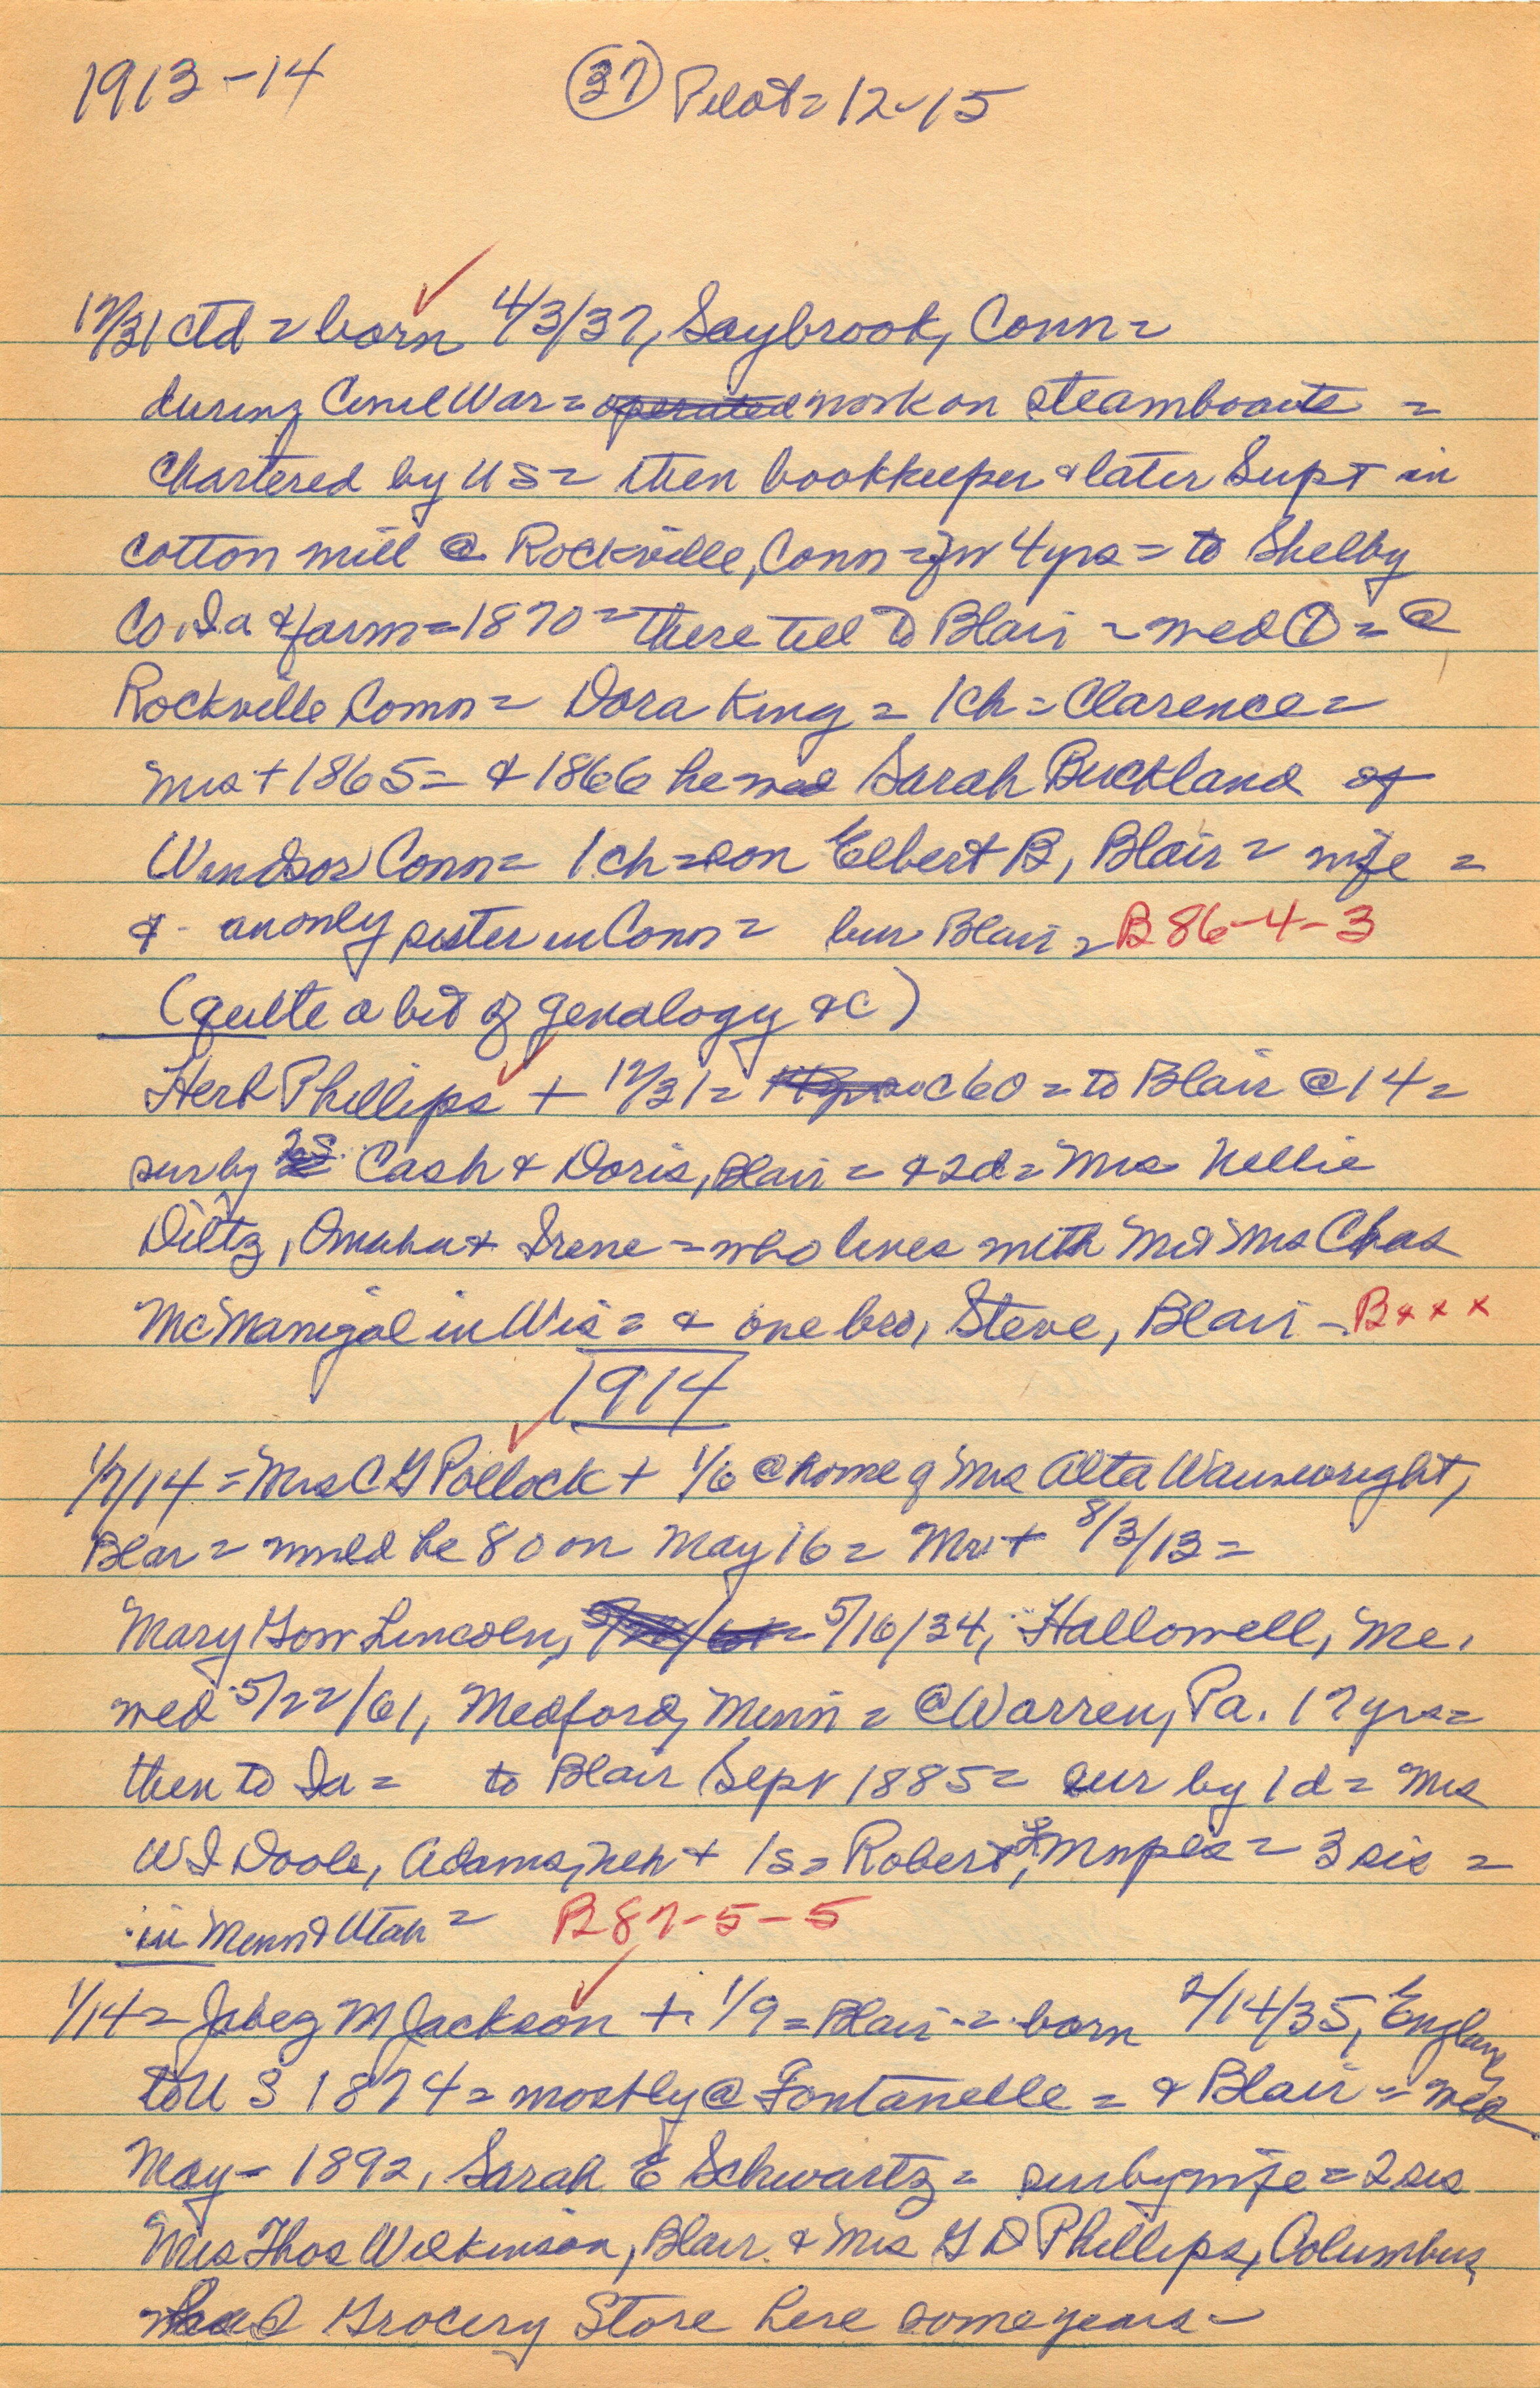 1913-14 (37) Pilot = 12-15
12/31 ctd = born 4/3/37, Saybrook, Conn =
during Civil War = operated work on steamboats =
chartered by US = then bookkeeper & later Supt in
cotton mill @ Rockville, Conn = for 4 yrs = to Shelby
Co. Ia & farm = 1870 = there till to Blair = med ① = @
Rockville Conn = Dora King = 1 ch = Clarence =
Mrs + 1865 = & 1866 he med Sarah Buckland of
Windsor Conn = 1 ch = son Elbert B, Blair = wife =
& an only sister in Conn = bur Blair = B 86-4-3
(quite a bit of genalogy &c)
Herb Phillips + 12/31 = c60 = to Blair @ 14 =
sur by 2s Cash & Doris, Blair = & 2d = Mrs Nellie
Diltz, Omaha & Irene = who lives with Mr & Mrs Chas
McManigal in Wis = & one bro, Steve, Blair - B x x x
1914
1/7/14 = Mrs C G Pollock + 1/6 @ home of Mrs Alta Wainwright,
Blair = would be 80 on May 16 = Mr + 8/3/13 =
Mary Gow Lincoln, 5/16/34, Hallowell, Me.
med 5/22/61, Medford, Minn = @ Warren, Pa. 17 yrs =
then to Ia = to Blair Sept 1885 = sur by 1 d = Mrs
W I Doole, Adams, Neb + 1s = Robert L, Mnpls = 3 sis =
in Minn & Utah = B 87-5-5
1/14 = Jabez M Jackson + 1/9 = Blair = born 2/14/35, England
to U S 1874 = mostly @ Fontanelle = & Blair = med
May - 1892, Sarah E Schwartz = sur by wife = 2 sis
Mrs Thos Wilkinson, Blair & Mrs G D Phillips, Columbus,
had Grocery Store here some years =